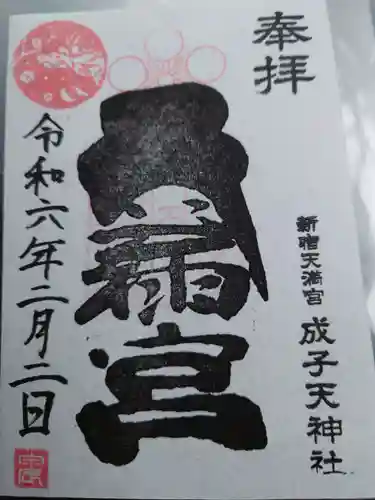 奉拝
新宿天満宮 成子天神社
宮
令和六年二月二日